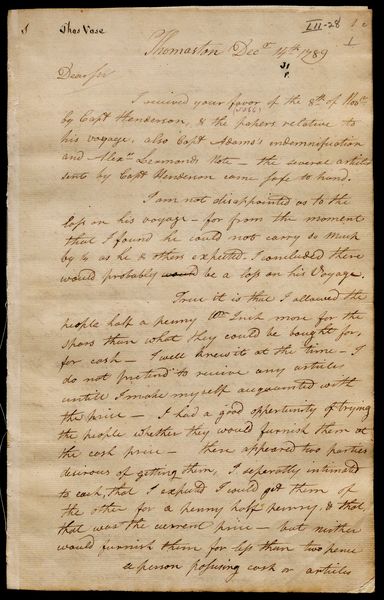 Thos Vose
LII-28
1
Thomaston Decr 14th 1789
Dear sir
I received your favor of the 8th of Novr
by Capt Henderson, & the papers relative to
his voyage, also Capt Adams's indemnification
and Alexr Lermonds Note – the several articles
sent by Capt Henderson came safe to hand.
I am not disappointed as to the
loss on his voyage – for from the moment
that I found he could not carry so much
by ¼ as he & others expected. I concluded there
would probably would be a loss on his Voyage.
True it is that I allowed the
people half a penny Inch more for the
spars than what they could be bought for,
for cash – I well knew it at the time – I
do not pretend to receive any articles
untill I make myself acquainted with
the price – I had a good oppertunity of trying
the people whether they would furnish them at
the cash price – there appeared two parties
desirous of getting them, I seperatly intimated
to each, that I expectd I could get them of
the other for a penny half penny, & that
that was the current price – but neither
would furnish them for less than two pence
a person possessing cash or articles